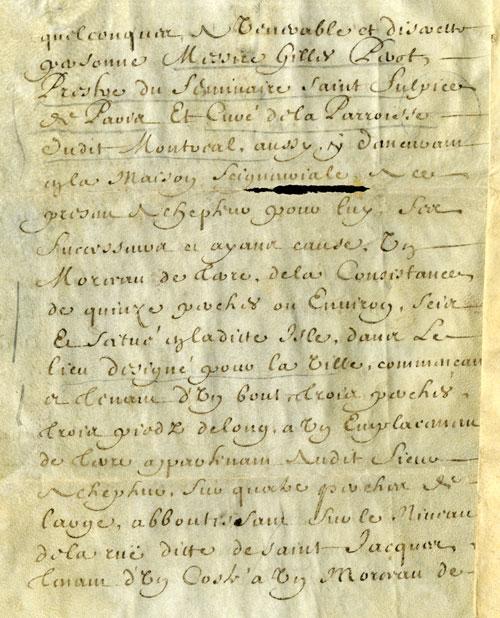 quelconques, A Venerable et discrette
personne Messire Gilles Perot,
Prestre du Seminaire saint Sulpice
de Paris Et Curé de la Parroisse
dudit Montreal, aussy, y demeurant
en la Maison Seigneuriale, A ce
present Achepteur pour luy, ses
Successeurs et ayans cause, Un
Morceau de terre, de la Consistance
de quinze perches ou Environ, Seis
Et Scitué en ladicte Isle, dans Le
lieu designé pour la Ville, commencant
a tenant d'Un bout, trois perches,
trois piedz de long, a Un Emplacement
de terre appartenant Audit Sieur
Achepteur, Sur quatre perches de
large, abboutissant Sur le Niveau
de la ruë ditte de saint Jacques,
tenant d'Un Costé a Un Morceau de